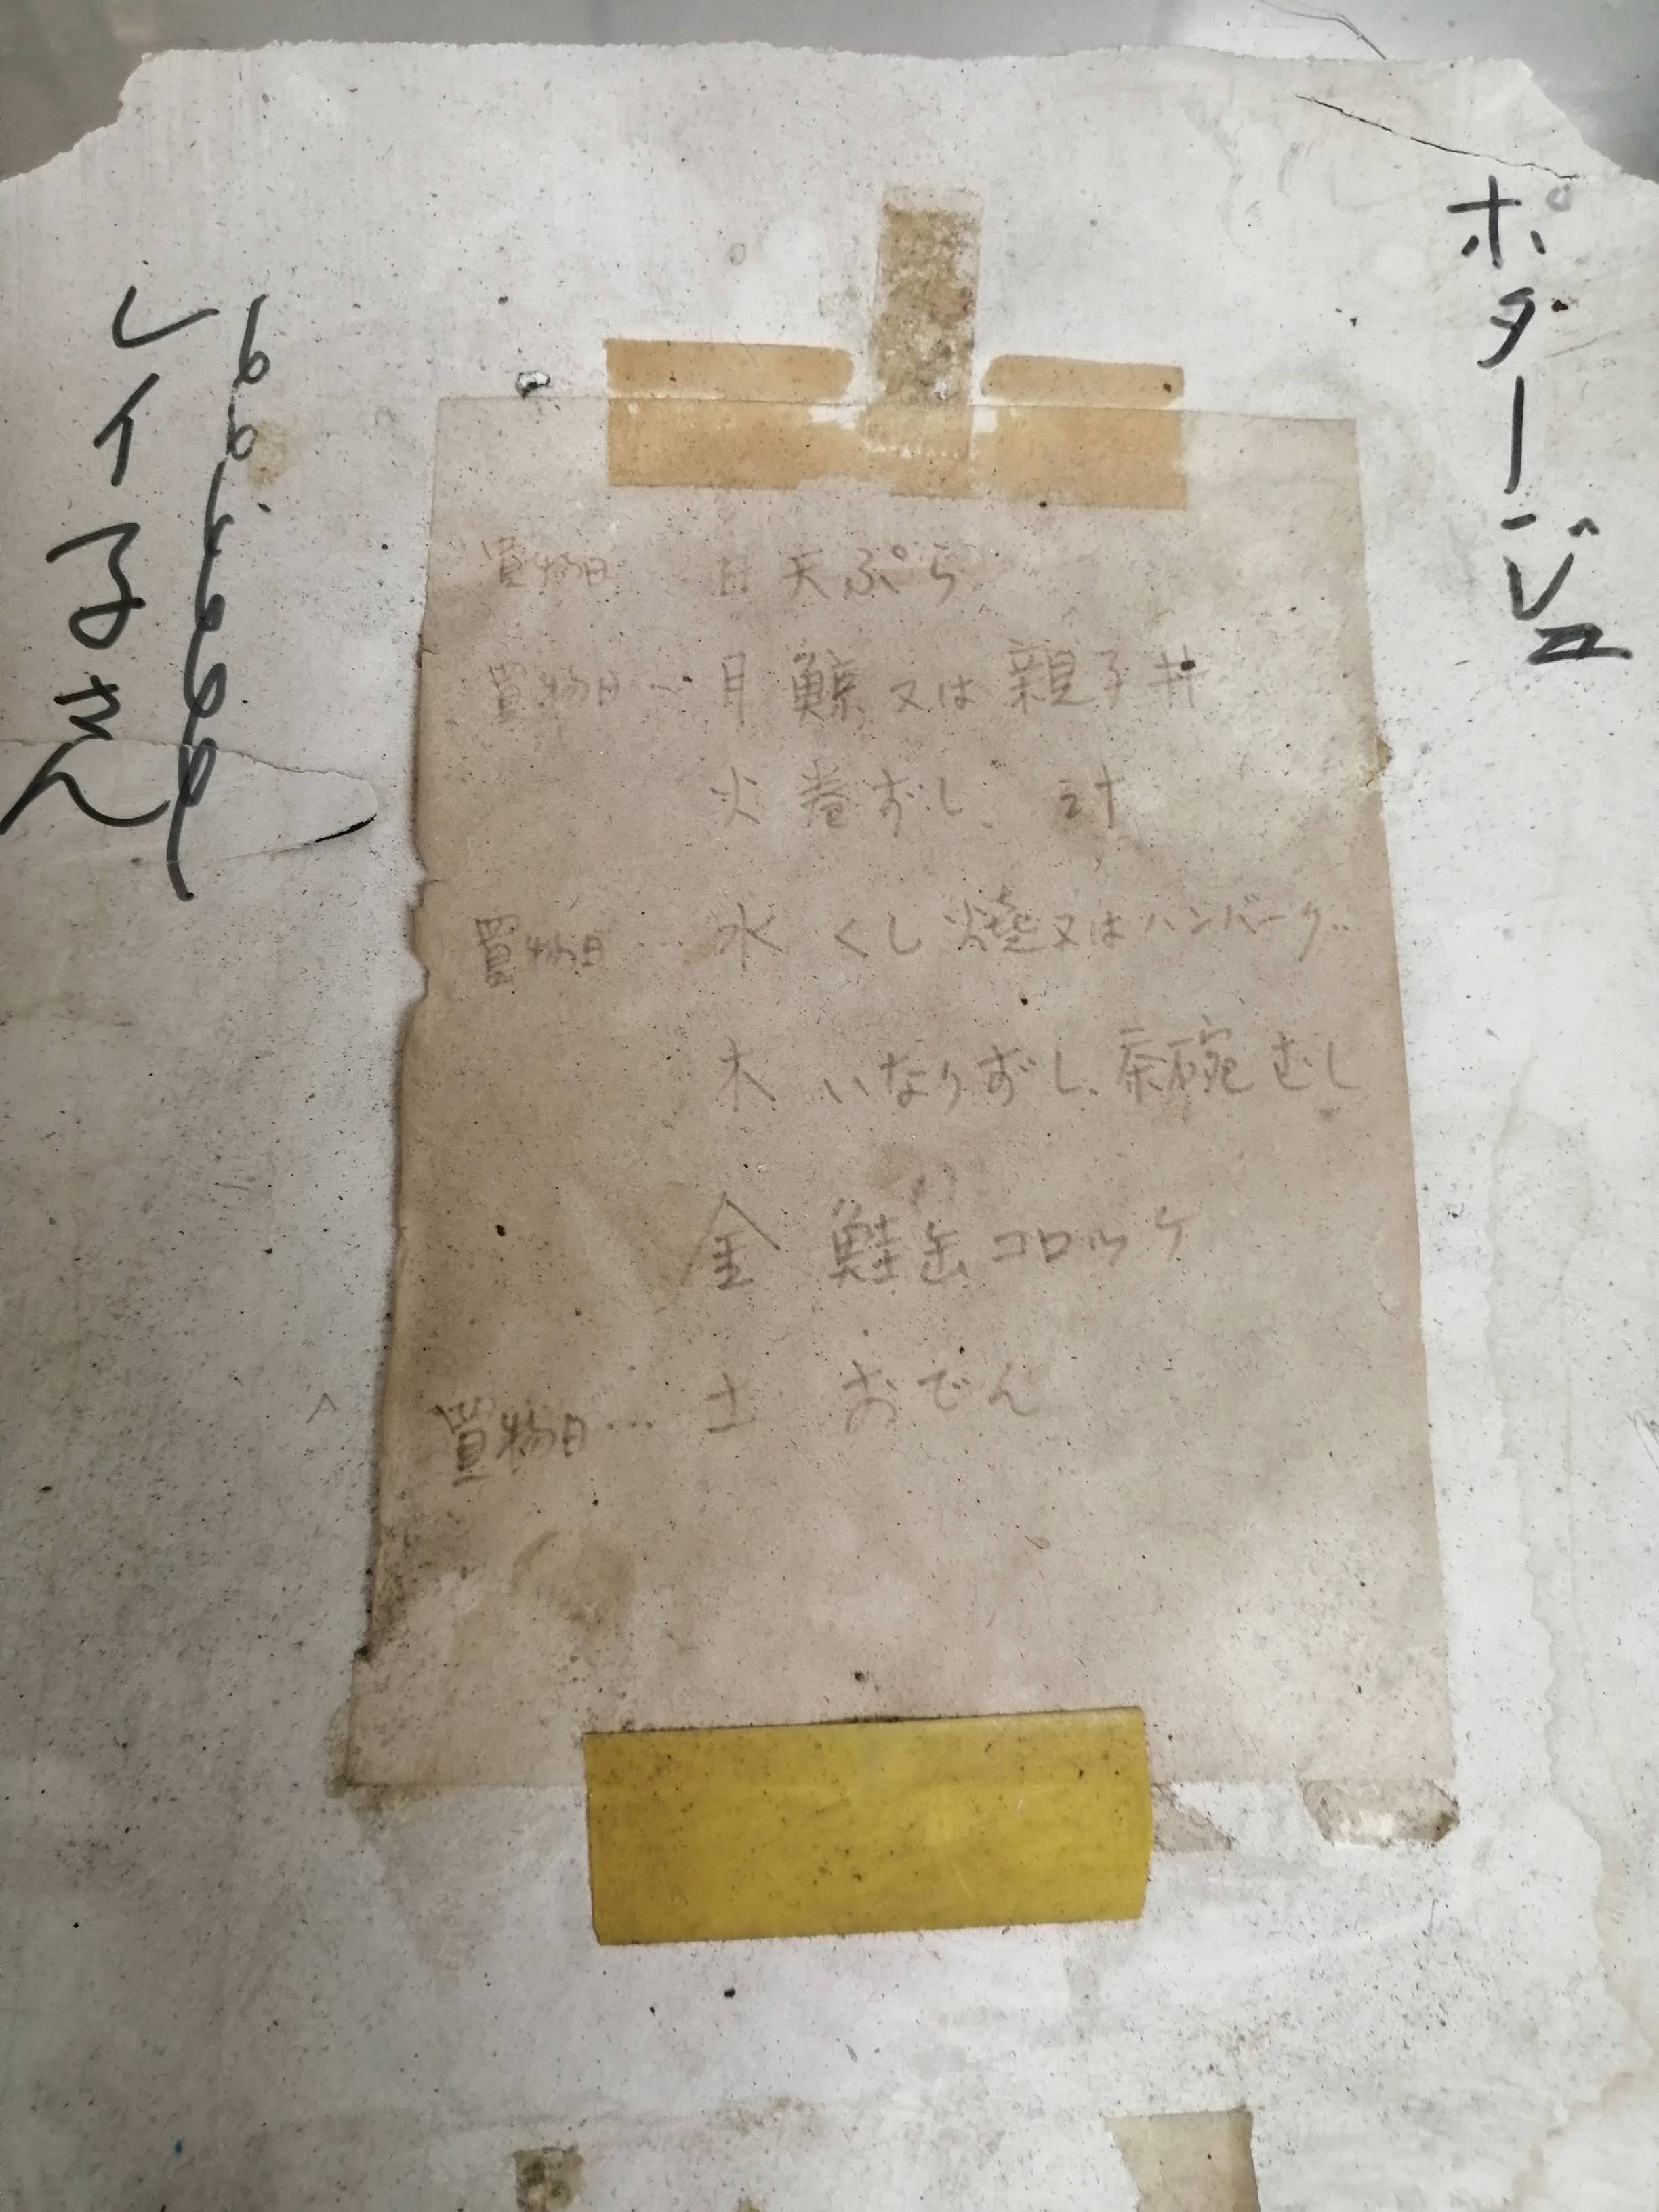 ポタージュ
買物日 日 天ぷら
買物日… 月 鯨又は親子丼
火 巻ずし、汁
買物日… 水 くし焼又はハンバーグ
木 いなりずし、茶碗むし
金 鮭缶コロッケ
買物日… 土 おでん
レイ子さん